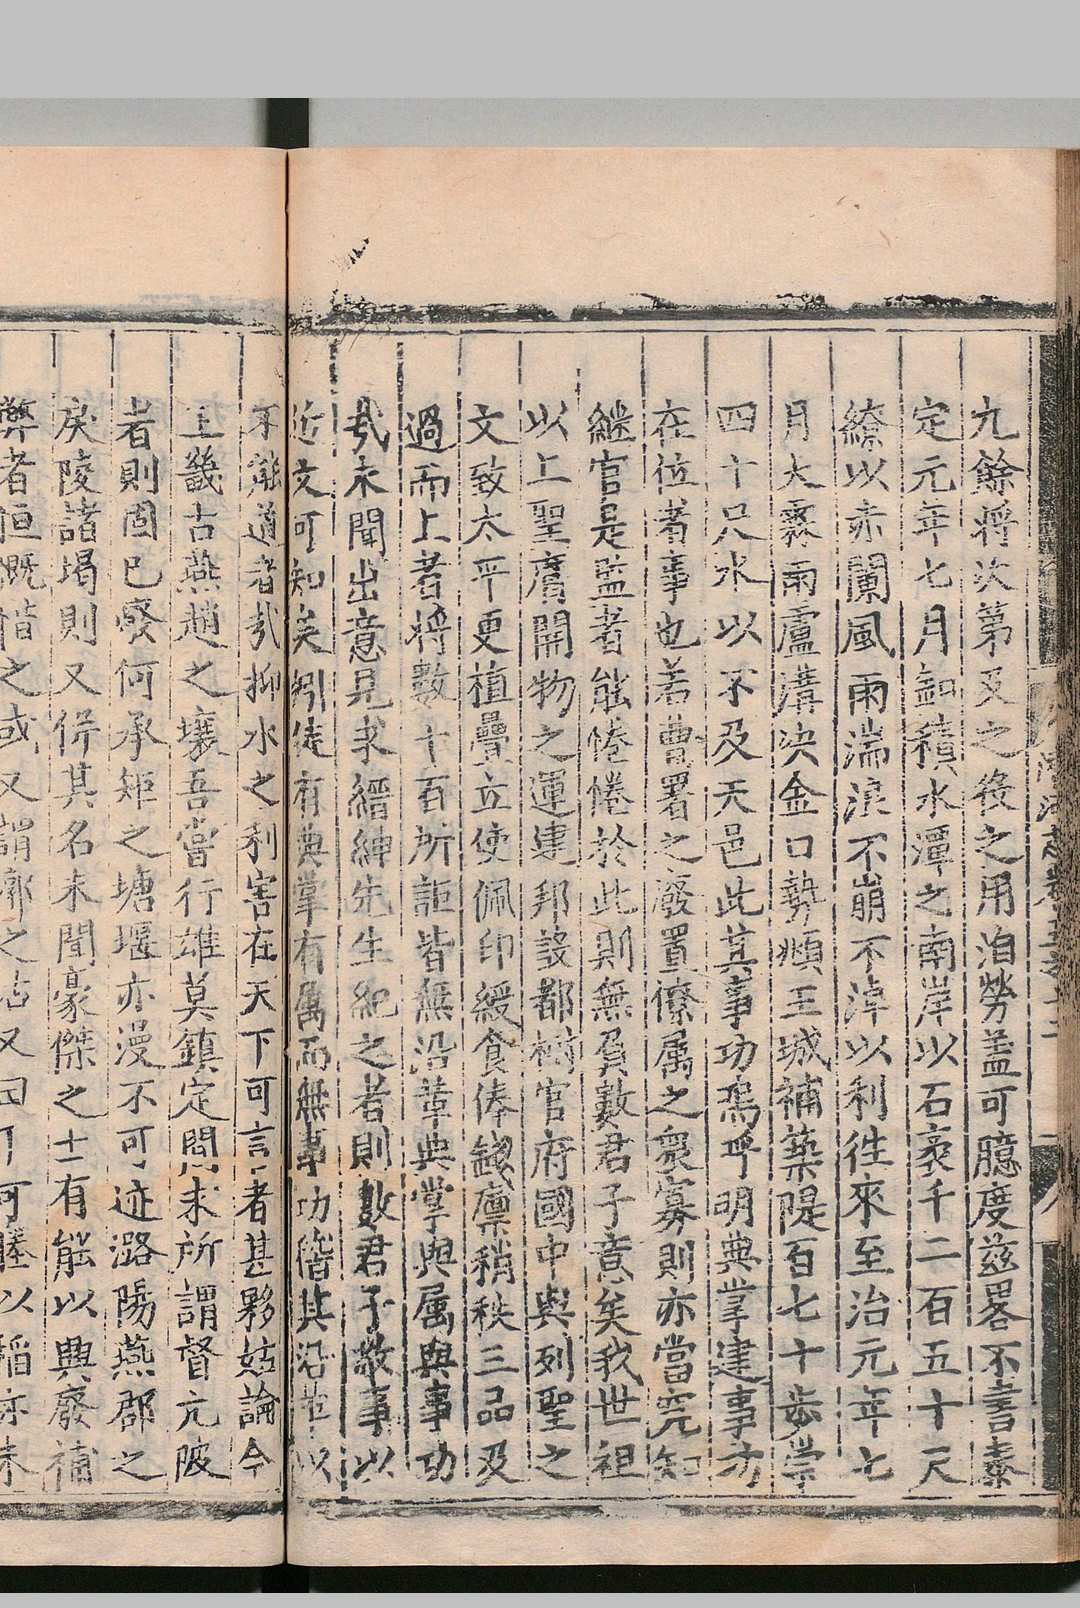 九餘將次第及之後之用洎勞盖可臆度兹畧不書泰
定元年七月缷積水潭之南岸以石袤千二百五十尺
繚以赤闌風雨湍浪不崩不淖以利徃來至治元年七
月大霖雨盧溝决金口勢頻王城補築隄百七十步崇
四十尺水以不及天邑此其事功烏呼明典掌建事功
在位者事也若曹署之廢置僚属之衆寡則亦當究知
継官是監者能惓惓於此則無負數君子意矣我世祖
以上聖廣開物之運建邦設都樹官府國中與列聖之
文致太平更植疊立使佩印綬食俸錢廪稍秩三品及
過而上者將數十百所詎皆無沿革典掌與属與事功
㢤未聞出意見求縉紳先生紀之者則數君子敬事以
近文可知矣矧徒有典掌有属而無事功偕其沿革以
不能道者㢤抑水之利害在天下可言者甚夥姑論今
王畿古燕趙之壤吾嘗行雄莫鎮定間求所謂督亢陂
者則固已廢何承矩之塘堰亦漫不可迹潞陽燕郡之
戾陵諸堨則又併其名未聞豪傑之士有能以興廢補
弊者恒慨惜之或又謂漷之沽又曰可可塍以稻亦未